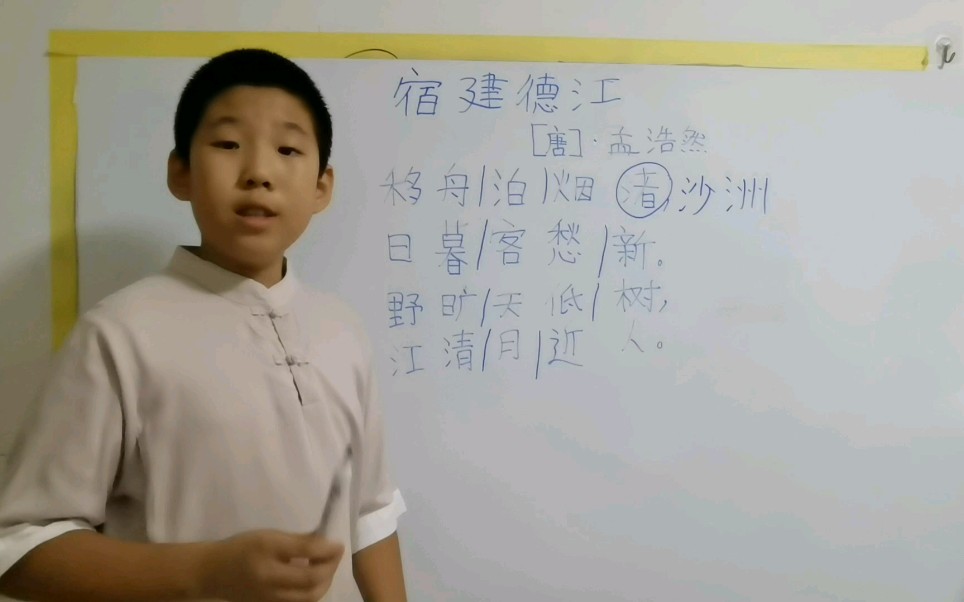 宿建德江
[唐]·孟浩然
移舟/泊/烟 渚,/沙洲/
日暮/客愁/新。
野旷/天低/树,
江清/月/近人。